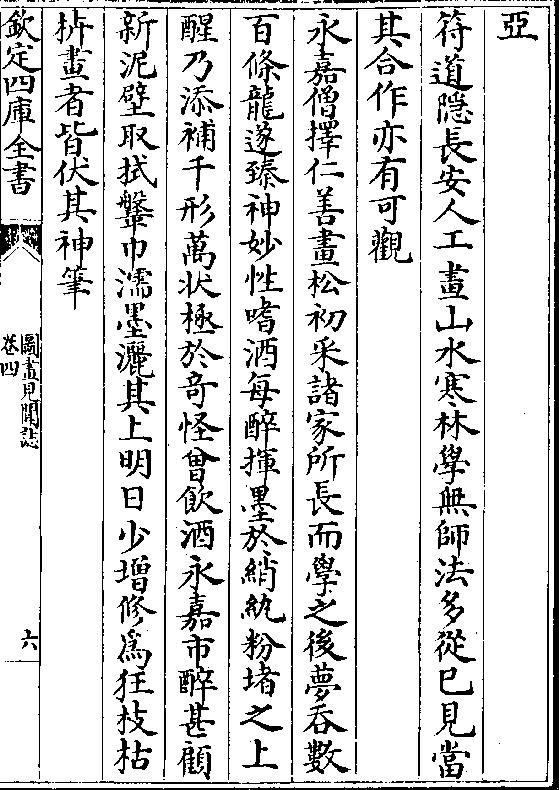 亞
符道隱長安人工畫山水寒林學無師法多從已見當
其合作亦有可觀
永嘉僧擇仁善畫松初采諸家所長而學之後夢吞數
百條龍遂臻神妙性嗜酒每醉揮墨於綃紈粉堵之上
醒乃添補千形萬状極於奇怪曾飲酒永嘉市醉甚顧
新泥壁取拭盤巾濡墨灑其上明日少增修為狂枝枯
枿畫者皆伏其神筆
欽定四庫全書
圖畫見聞誌
卷四
六